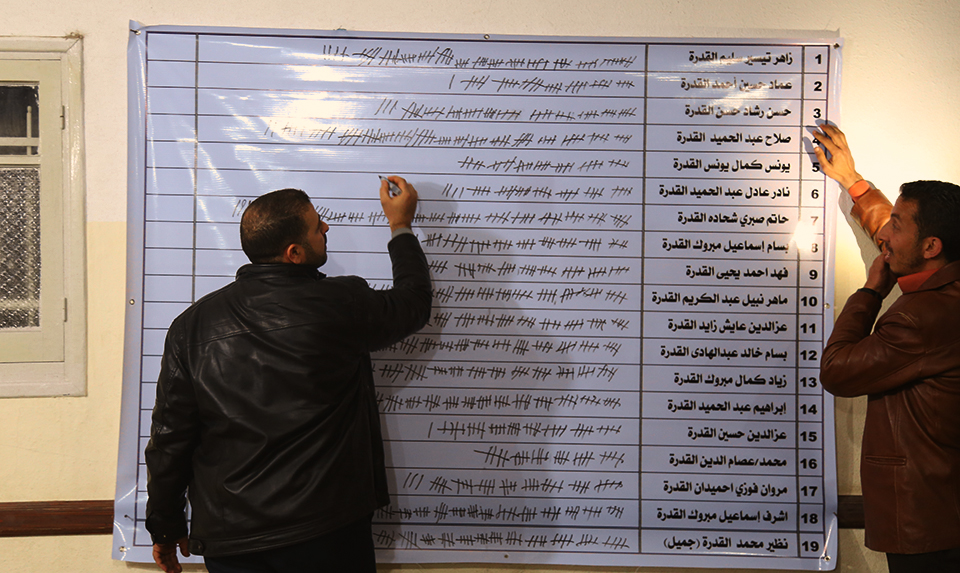 1 زاهر تيسير القدرة
2 عماد حسين أحمد القدرة
3 حسن رشاد حسن القدرة
4 صلاح عبد الحميد القدرة
5 يونس كمال يونس القدرة
6 نادر عادل عبد الحميد القدرة
7 حاتم صبري شحاده القدرة
8 بسام إسماعيل مبروك القدرة
9 فهد احمد يحيى القدرة
10 ماهر نبيل عبد الكريم القدرة
11 عزالدين عايش زايد القدرة
12 بسام خالد عبدالهادى القدرة
13 زياد كمال مبروك القدرة
14 إبراهيم عبد الحميد القدرة
15 عزالدين حسين القدرة
16 محمد/عصام الدين القدرة
17 مروان فوزي احميدان القدرة
18 اشرف إسماعيل مبروك القدرة
19 نظير محمد القدرة (جميل)